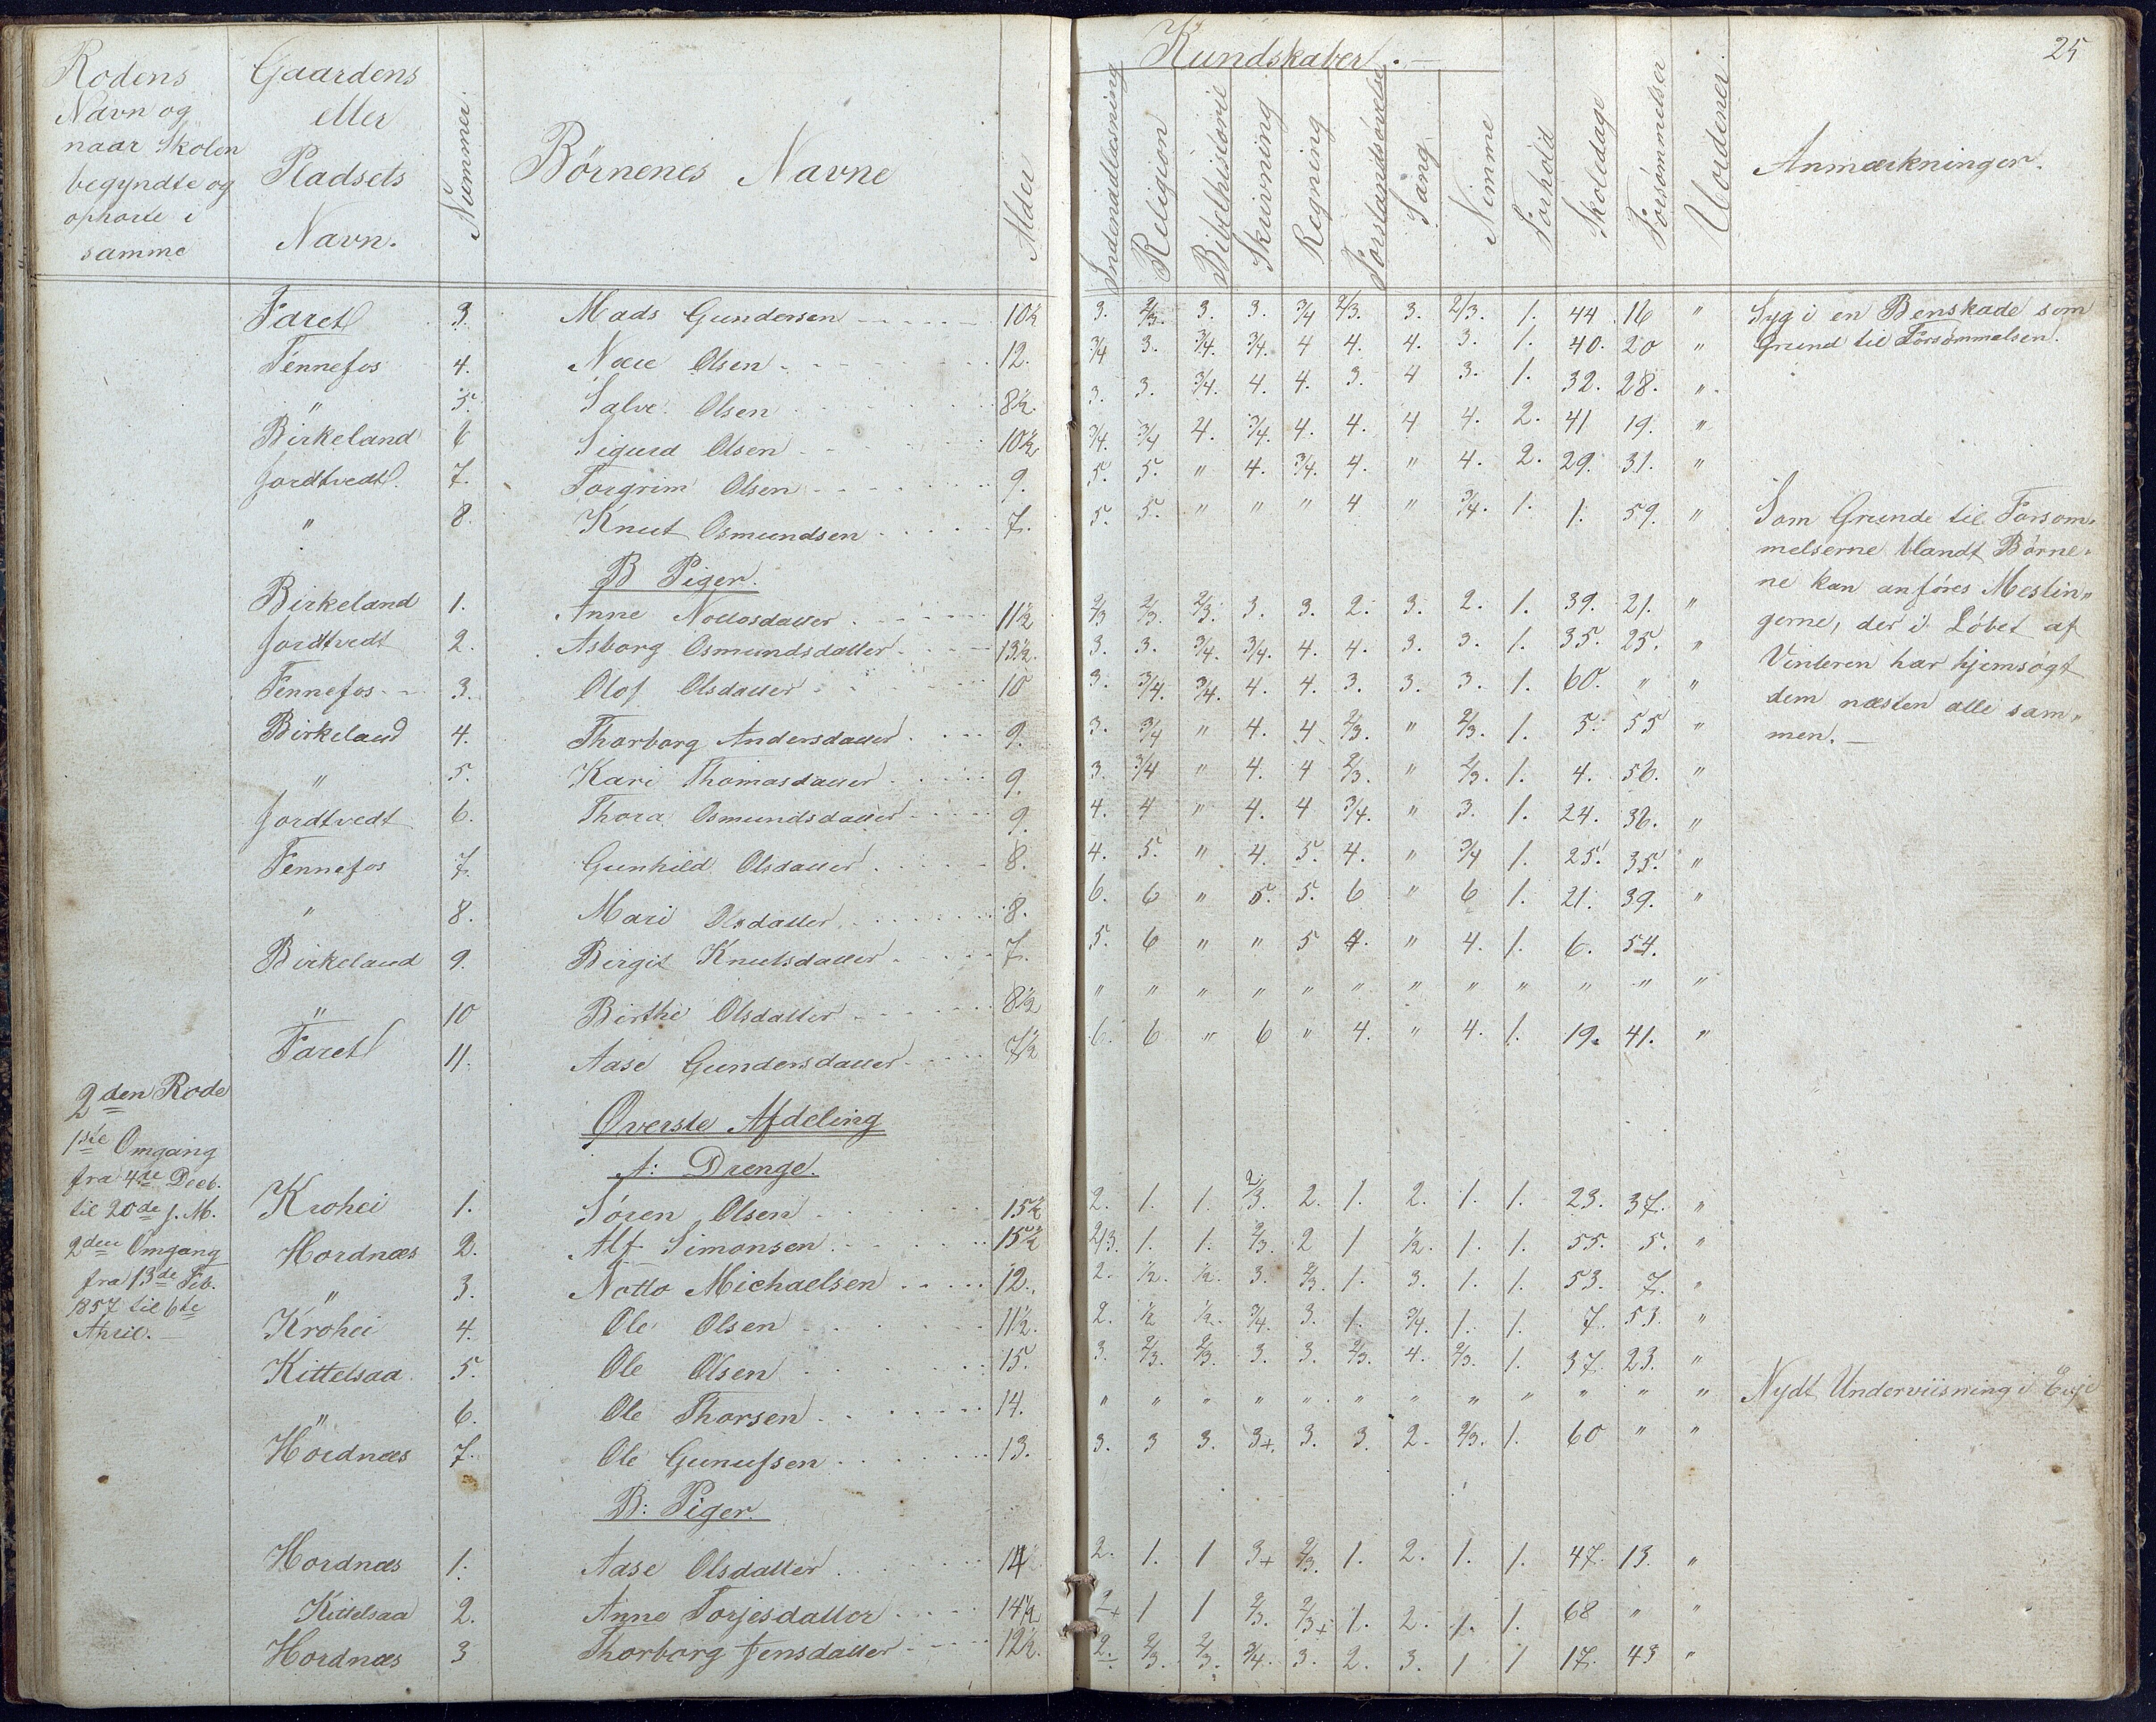 25
Rodens Navn og naar Skolen begyndte og ophørte i samme | Gaardens eller Pladsets Navn. | Nummer. | Børnenes Navne | Alder | Kundskaber. — | Indenadlæsning | Religion | Bibelhistorie | Skrivning | Regning | Forstandsøvelse | Sang | Nemme | Forhold | Skoledage | Forsømmelser | Uordener. | Anmærkninger.
Faret 3. Mads Gundersen 10½ 3. 2/3. 3. 3. 3/4 2/3. 3. 2/3. 1. 44. 16 " Syg i en Benskade som
Fennefos 4. Olsen 12. 3/4 3. 3/4. 3/4. 4 4. 4. 3. 1. 40. 20 " Grund til Forsømmelsen.
" 5. Salve Olsen 8½. 3. 3. 3/4. 4. 4. 3. 4 3. 1. 32. 28. "
Birkeland 6 Sigurd Olsen 10½ 3/4. 3/4 4. 3/4. 4. 4. 4 4. 2. 41 19. "
Jordtvedt. 7. Torgrim Olsen 9. 5. 5. " 4. 3/4. 4. " 4. 2. 29. 31. "
" 8. Knut Osmundsen 7. 5. 5. " " " 4 " 3/4. 1. 1. 59. " Som Grunde til Forsøm-
B Piger.
melserne blandt Børne-
Birkeland 1. Anne Nottosdatter 11½ 2/3 2/3. 2/3. 3. 3. 2. 3. 2. 1. 39. 21. " ne kan anføres Meslin"
Jordtvedt 2. Asborg Osmundsdatter 13½. 3. 3. 3/4. 3/4. 4. 4. 3. 3. 1. 35. 25. " gerne, der i Løbet af
Fennefos 3. Olof Olsdatter 10 3. 3/4. 3/4. 4. 4. 3. 3. 3. 1. 60. " " Vinteren har hjemsøgt
Birkeland 4. Thorborg Andersdatter 9. 3. 3/4 " 4. 4 2/3. " 2/3. 1. 5. 55 " dem næsten alle sam"
men. —
" 5. Kari Thomasdatter 9. 3. 3/4 " 4. 4 2/3. " 2/3. 1. 4. 56. "
Jordtvedt 6. Thora Osmundsdatter 9. 4. 4 " 4. 4 3/4. " 3. 1. 24. 36. "
Fennefos 7. Gunhild Olsdatter 8. 4. 5. " 4. 5. 4. " 3/4 1. 25. 35. "
" 8. Mari Olsdatter 8. 6. 6 " 5. 5. 6 " 6 1. 21. 39. "
Birkeland 9. Birgit Knutsdatter 7. 5. 6 " " 5 4. " 4. 1. 6. 54.
" 10 Birthe Olsdatter 8½ " " " " " " " " " " " "
Faret 11. Aase Gundersdatter 7½ 6. 6 " 6 " 4. " 4. 1. 19. 41. "
2den Rode
1ste Omgang
fra 4de Decb.
til 20de s. M.
2den Omgang
fra 13de Feb.
1857 til 6te
April. —
Øverste Afdeling
A: Drenge.
Krohei 1. Søren Olsen 15½ 2. 1. 1. 2/3. 2. 1. 2. 1. 1. 23. 37. "
Hordnæs 2. Alf Simonsen 15½ 2/3. 1. 1. 2/3. 2 1 ½. 1. 1. 55. 5. "
" 3. Notto Michaelsen 12. 2. ½. ½. 3. 2/3. 1. 3. 1. 1. 53. 7. "
Krohei 4. Ole Olsen 11½. 2. ½ ½. 3/4. 3. 1. 3/4. 1. 1. 7. 53. "
Kittelsaa 5. Ole Olsen 15. 3. 2/3. 2/3. 3. 3. 2/3. 4. 2/3. 1. 37. 23. "
" 6. Ole Thorsen 14. " " " " " " " " " " " " Nydt Underviisning i Evje
Hordnæs 7. Ole Gunufsen 13. 3. 3 3. 3+. 3. 3. 2. 2/3. 1. 60 " "
B: Piger.
Hordnæs 1. Aase Olsdatter 14 2. 1. 1 3+ 2/3. 1. 2. 1. 1. 47. 13. "
Kittelsaa 2. Anne Torjesdatter 14½ 2+ 1 1 2/3. 2/3+ 1. 2. 1. 1. 68 " "
Hordnæs 3 Thorborg Jensdatter 12½. 2. 2/3. 2/3. 3/4. 3. 2. 3. 1 1 17. 43 "